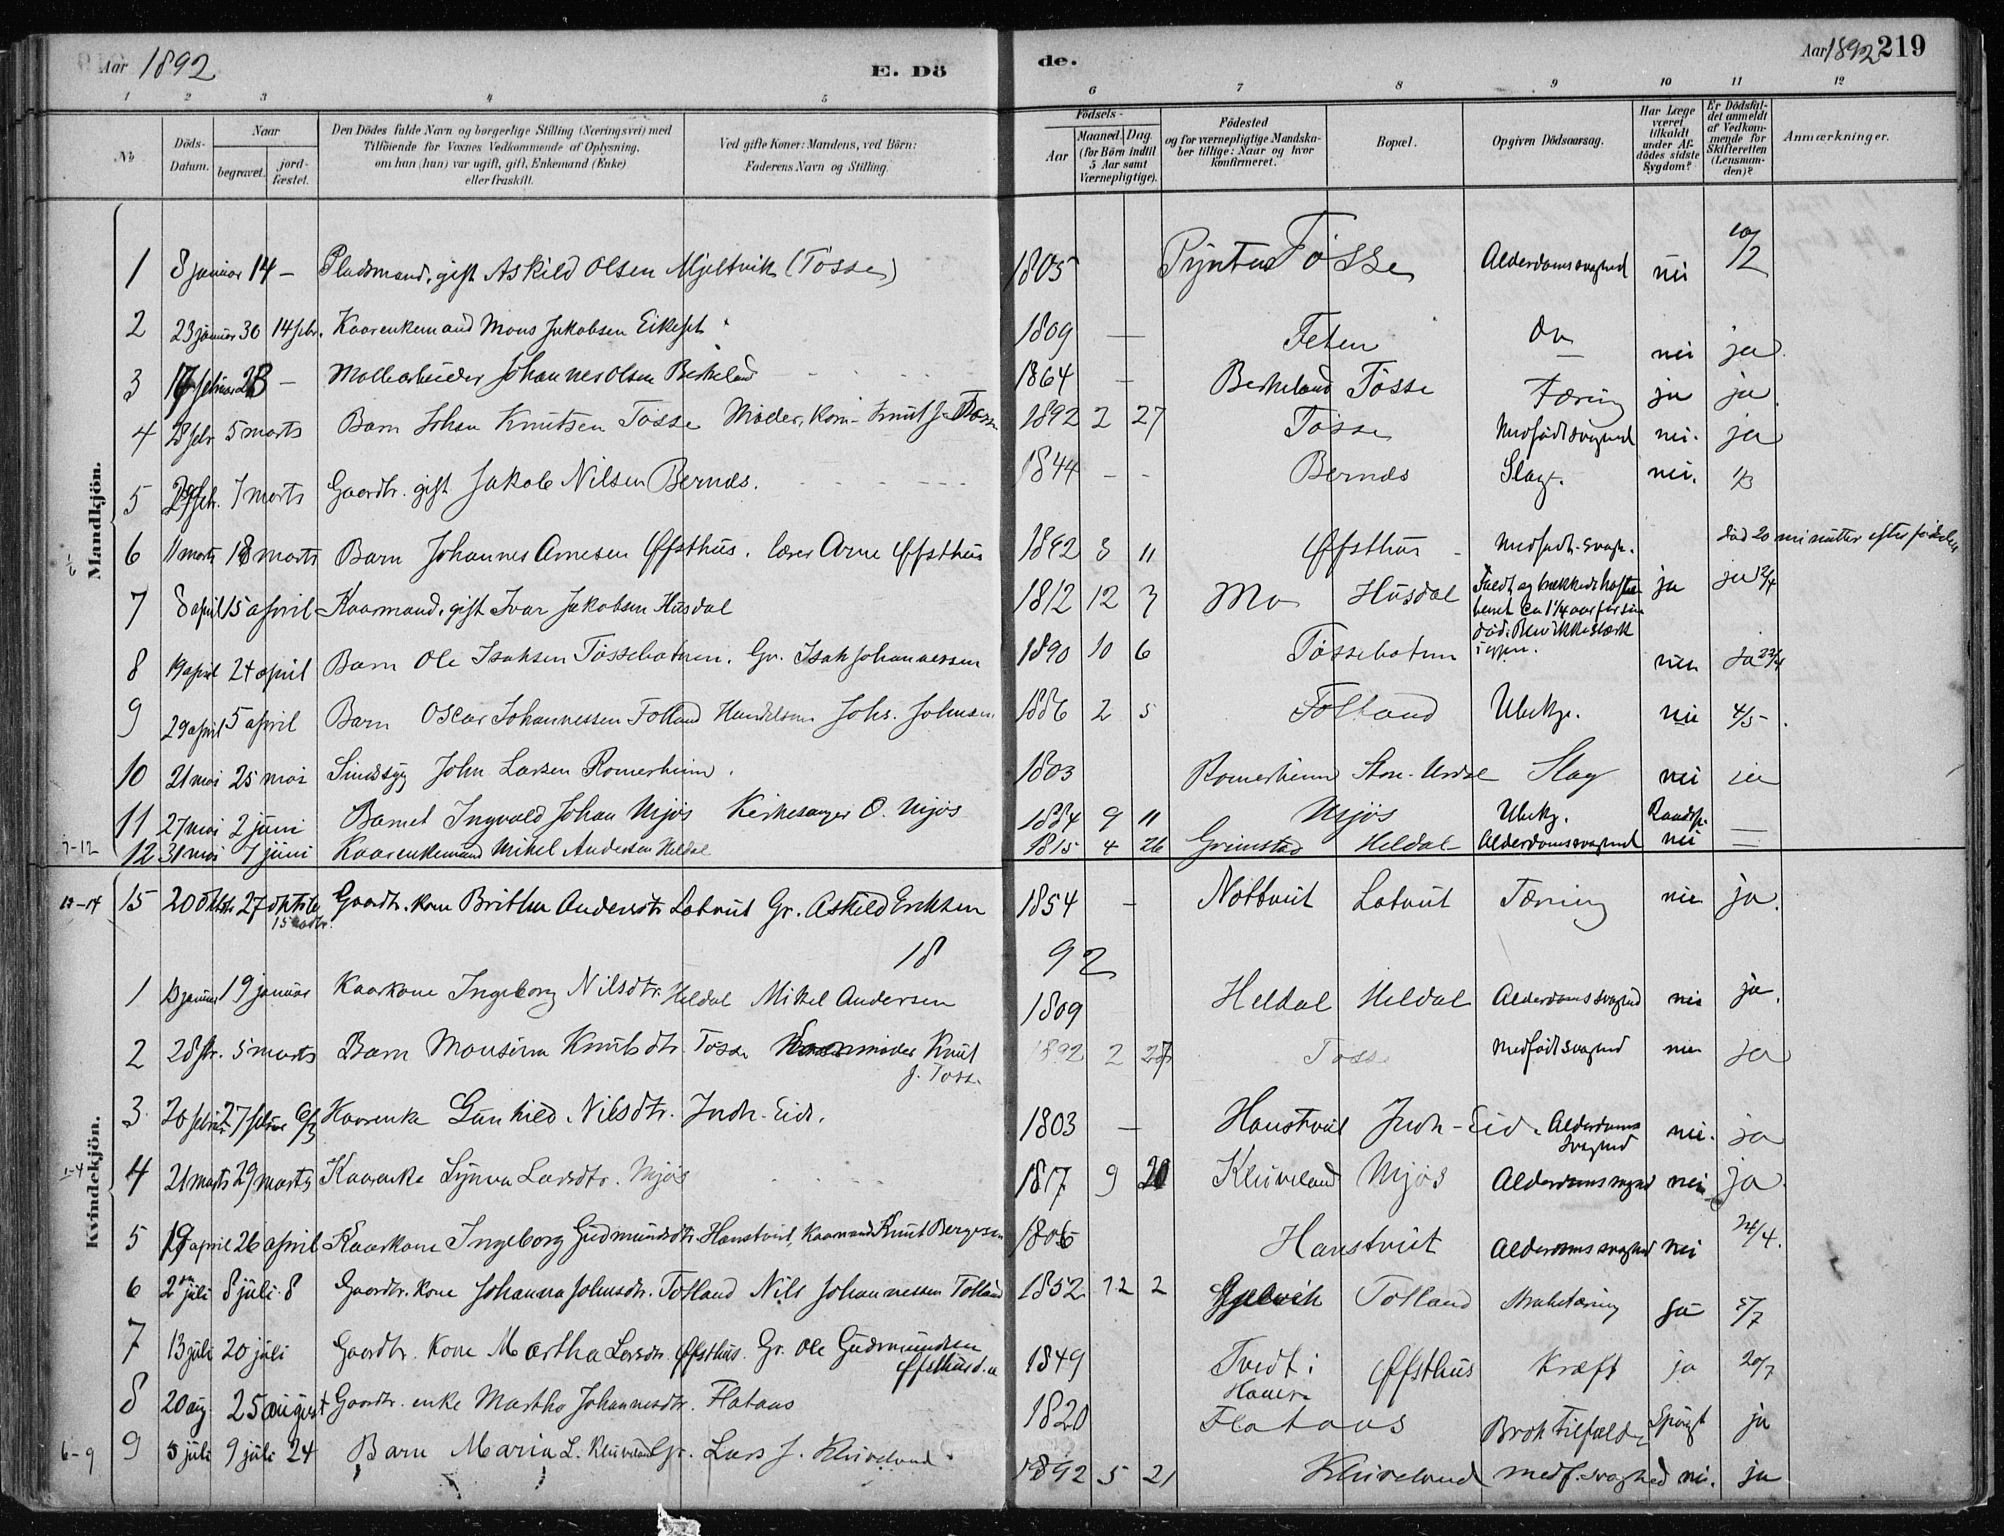 Aar 1892
E. Dö
de.
Aar 1892 219
1 2 3 4 5 6 7 8 9 10 11 12
№
Döds-Datum.
Naar
begravet.
jord-fæstet.
Den Dödes fulde Navn og borgerlige Stilling (Næringsvei) med
Tilföiende for Voxnes Vedkommende af Oplysning,
om han (hun) var ugift, gift, Enkemand (Enke)
eller fraskilt.
Ved gifte Koner: Mandens, ved Börn:
Faderens Navn og Stilling.
Födsels-
Aar
Maaned. Dag.
(for Börn indtil
5 Aar samt
Værnepligtige).
Födested
og for værnepligtige Mandska-
ber tillige: Naar og hvor
konfirmeret.
Bopæl.
Opgiven Dödsaarsag.
Har Læge
været
tilkaldt
under Af-
dødes sidste
Sygdom?
Er Dödsfal-
det anmeldt
af Vedkom-
mende for
Skifteretten
(Lensman-
den)?
Anmærkninger.
Mandkjön.
1 8 januar 14 – Pladsmand, gift Askild Olsen Mjeltvik (Tosse) 1805 Pynten Tösse Alderdomssvaghed nei 10/2
2 23 januar 30 14 febr. Kaarenkemand Mons Jakobsen Eikeset 1809 — Feten Do nei ja.
3 februar 23 – Johannes Olsen Birkeland 1864 – Birkeland Tösse Tæring ja ja.
4 28 febr 5 marts Barn Johan Knutsen Tosse Knut J. Tosse 1892 2 27 Tosse Medfödt svaghed nei. ja
5 29 febr. 7 marts Gaardbr. gift Jakob Nilsen Bernæs. 1844 – – Bernæs Slagt. nei. 1/3
6 11 marts 18 marts Barn Johannes Arnesen Øfsthus. lærer Arne Øfsthus 1892 3 11 Øfsthus – Medfødt svagh. död 20 minutter efter födselen
7 8 april 15 april Kaarmand, gift Ivar Jakobsen Husdal 1812 12 3 Mo Husdal Faldt og brækkede hofte
benet ca 1 1/4 aar før sin
död. Blev ikke stærk
igjen. ja ja 2/4
8 19 april 24 april Barn Ole Isaksen Tössebotnen. Gr. Isak Johannessen 1890 10 6 Tössebotnen nei ja 23/4
9 29 april 5 april Barn Oscar Johannessen Totland Handelsm Johs. Johnsen 1886 2 5 Totland Ubekj. nei 4/5 –
10 21 mai 25 mai Sindssyg John Larsen Romerheim. 1803 Romerheim Slag nei ja
11 27 mai 2 juni Barnet Ingvald Johan Mjøs Kirkesanger O. Mjøs 1884 9 11 Mjøs Ubekj. —
7-12 12 31 mai 7 juni Kaarenkemand Mikel Andersen Heldal 1815 4 26 Grimstad Heldal Alderdomssvaghed nei —
15 20 oktbr 27 oktober Gaardbr. kone Britha Andersdtr Lotveit Gr. Askild Eriksen 1854 – Nottveit Lotveit Tæring nei ja.
1892
Kvindekjön.
1 13 januar 19 januar Kaarkone Ingeborg Nilsdtr. Heldal Mikel Andersen 1809 Heldal Heldal Alderdomssvaghed nei ja.
2 28 fbr. 5 marts Barn Monsina Knutsdtr. Tosse Knut
J. Tosse 1892 2 27 Tosse Medfödt svaghed nei ja
3 20 februar 27 februar 6/3 Kaarenke Gunhild Nilsdtr. Indr. Eide. 1803 — Hanstveit Indr-Eide. Alderdoms
svaghed nei. ja
1-4 4 21 marts 29 marts Kaarenke Synva Larsdtr. Mjøs 1817 9 20 Kleiveland Mjøs Alderdomssvaghed nei ja.
5 19 april 26 april Kaarkone Ingeborg Gudmundsdtr Hanstveit, Kaarmand Knut Bergesen 1806 Hanstveit Alderdomssvaghed nei 24/4.
6 2 juli 8 juli 8 Gaardbr. kone Johanna Johnsdtr. Totland Nils Johannessen Totland 1852 12 2 Gjelvik Totland ja 5/7
7 13 juli 20 juli Gaardbr. kone Martha Larsdtr. Øfsthus. Gr. Ole Gudmundsen
Øfsthus 1849 Tvedt i
Hamre Øfsthus Kræft ja 20/7
8 20 aug 25 august Gaardbr. enke Martha Johannesdtr. Flataas 1820 Flataas Brok Tilfælde Spurgt ja
6-9 9 5 juli 9 juli 24 Barn Maria L. Kleiveland Gr. Lars J. Kleiveland 1892 5 21 Kleiveland medf. svaghed nei. ja